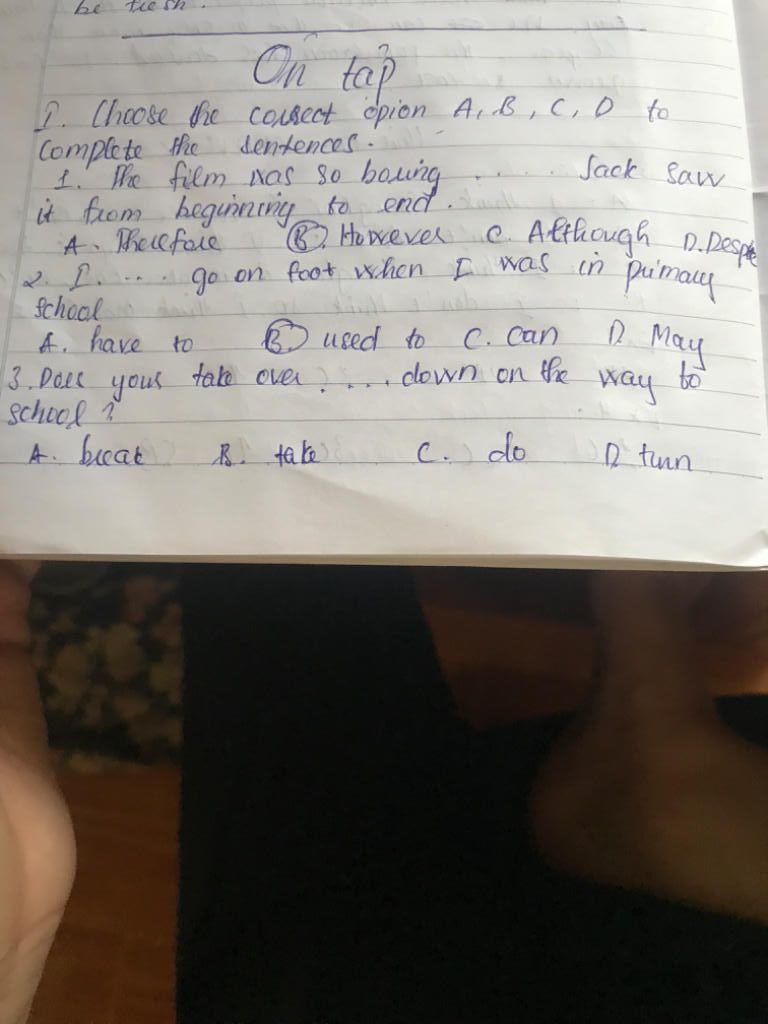 be fresh.
Ôn tập
I. Choose the correct opion A, B, C, D to
complete the sentences.
1. The film was so boring ..... Jack saw
it from beginning to end.
A. Therefore B. However C. Although D. Despite
2. I .... go on foot when I was in primary
school
A. have to B. used to C. can D. May
3. Does your take over ? ... down on the way to
school ?
A. break B. take C. do D. turn